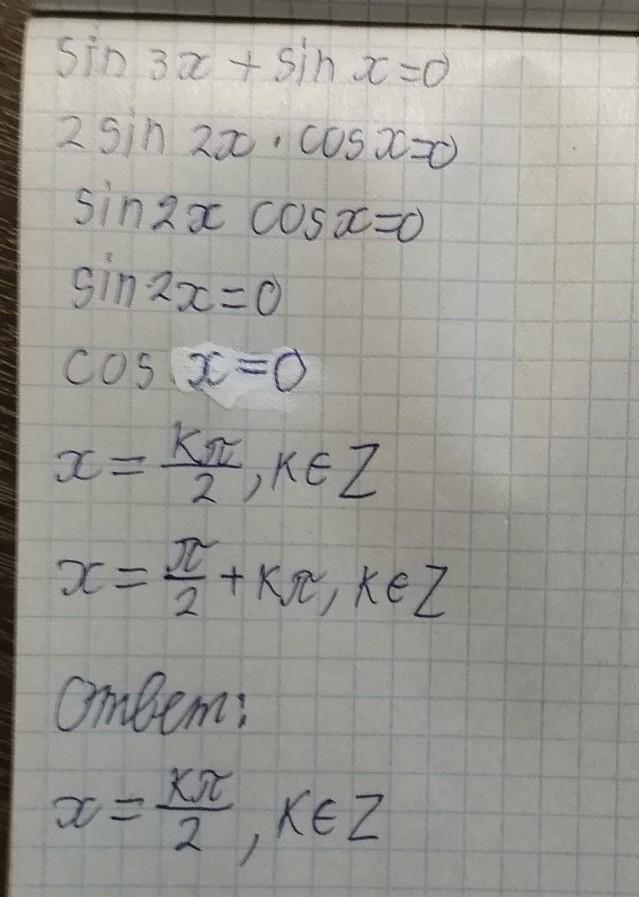 sin 3x + sin x = 0
2 sin 2x · cos x = 0
sin 2x cos x = 0
sin 2x = 0
cos x = 0
x = kπ/2, k ∈ Z
x = π/2 + kπ, k ∈ Z
Ответ:
x = kπ/2, k ∈ Z